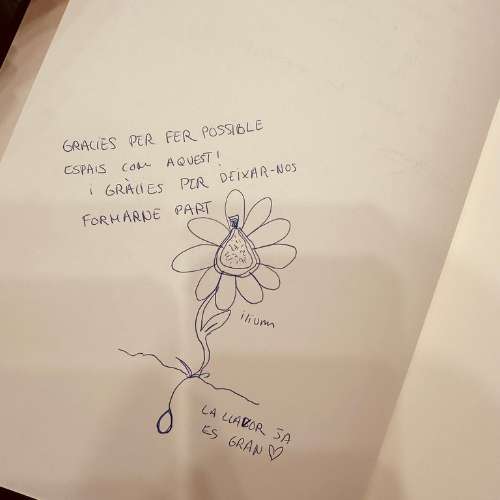 GRACIES PER FER POSSIBLE
ESPAIS COM AQUEST!
i GRÀCIES PER DEIXAR-NOS
FORMARNE PART
ilium
LA LLAVOR JA
ES GRAN ♡